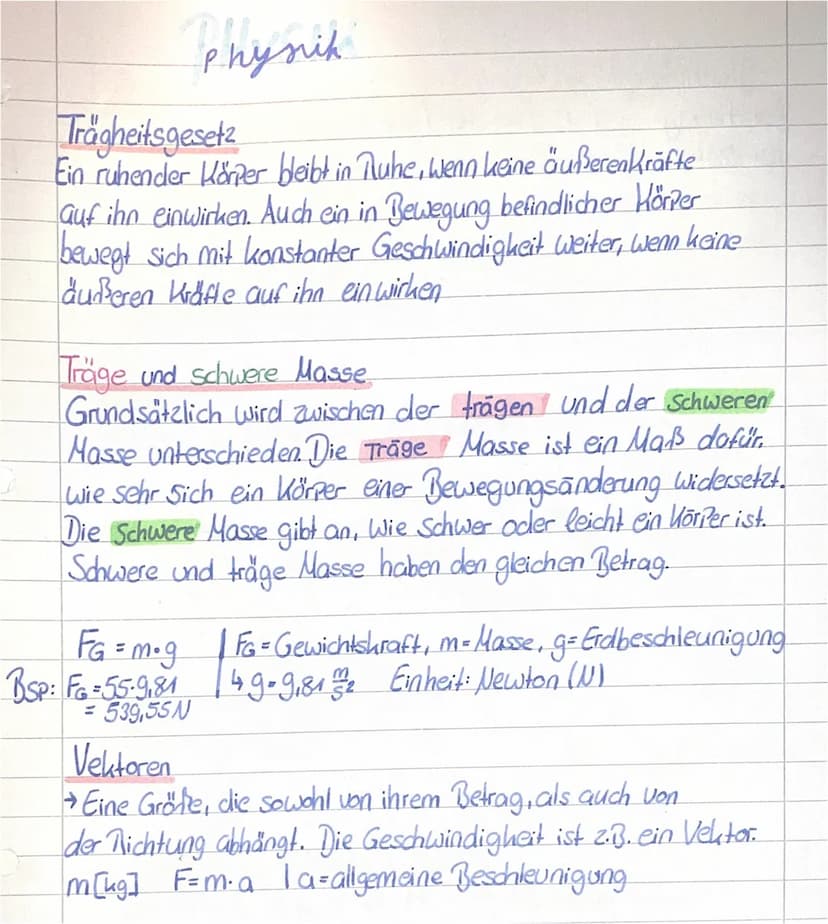 Physik
Trägheitsgesetz
Ein ruhender Körper bleibt in Ruhe, wenn keine äußeren Kräfte
auf ihn einwirken. Auch ein in Bewegung befindlicher Körper
bewegt sich mit konstanter Geschwindigkeit weiter, wenn keine
äußeren Kräfte auf ihn einwirken
Träge und schwere Masse
Grundsätzlich wird zwischen der trägen und der schweren
Masse unterschieden. Die Träge Masse ist ein Maß dafür,
wie sehr sich ein Körper einer Bewegungsänderung widersetzt.
Die Schwere Masse gibt an, wie schwer oder leicht ein Körper ist.
Schwere und träge Masse haben den gleichen Betrag.
FG = m·g | FG = Gewichtskraft, m = Masse, g = Erdbeschleunigung
Bsp: FG = 55·9,81 | ↳ g = 9,81 m/s² Einheit: Newton (N)
= 539,55N
Vektoren
→ Eine Größe, die sowohl von ihrem Betrag, als auch von
der Richtung abhängt. Die Geschwindigkeit ist z.B. ein Vektor.
m[kg] F = m·a | a = allgemeine Beschleunigung